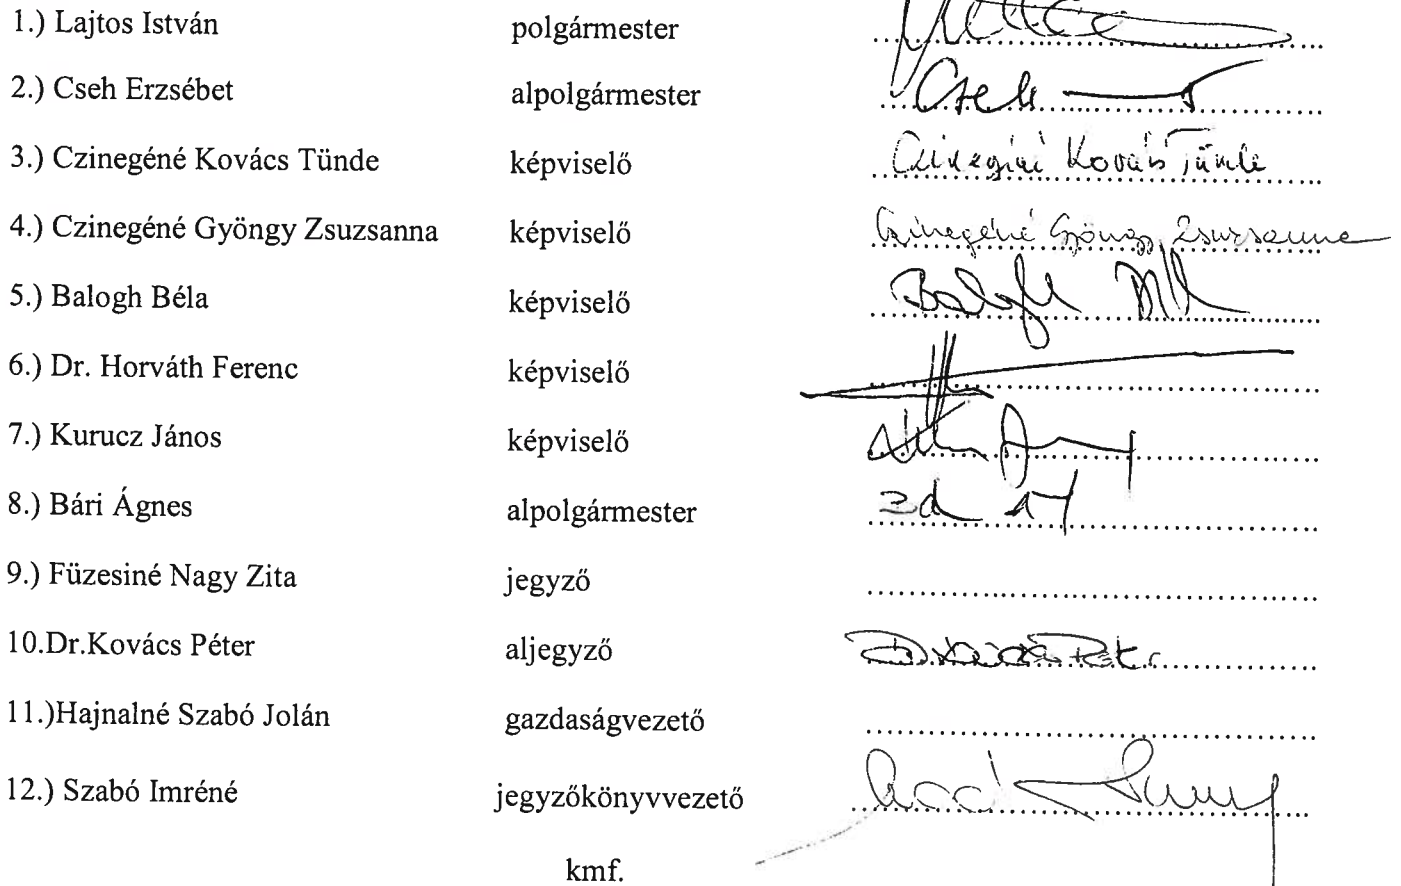 1.) Lajtos István polgármester
2.) Cseh Erzsébet alpolgármester Cseh
3.) Czinegéné Kovács Tünde képviselő Czinegéné Kovács Tünde
4.) Czinegéné Gyöngy Zsuzsanna képviselő Czinegéné Gyöngy Zsuzsanna
5.) Balogh Béla képviselő Balogh
6.) Dr. Horváth Ferenc képviselő
7.) Kurucz János képviselő
8.) Bári Ágnes alpolgármester
9.) Füzesiné Nagy Zita jegyző
10.Dr.Kovács Péter aljegyző
11.)Hajnalné Szabó Jolán gazdaságvezető
12.) Szabó Imréné jegyzőkönyvvezető
kmf.